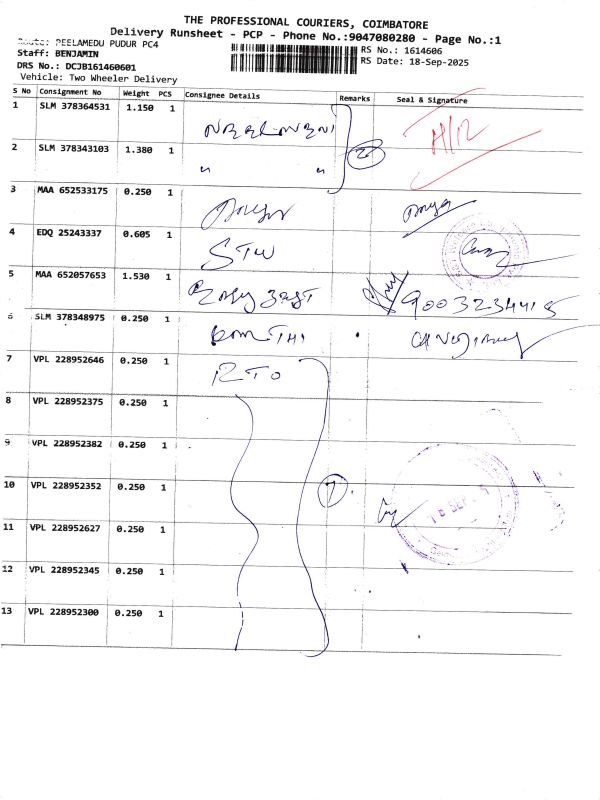 THE PROFESSIONAL COURIERS, COIMBATORE
Delivery Runsheet - PCP - Phone No.:9047080280 - Page No.:1
Route: PEELAMEDU PUDUR PC4
Staff: BENJAMIN
RS No.: 1614606
DRS No.: DCJB161460601
RS Date: 18-Sep-2025
Vehicle: Two Wheeler Delivery
S No Consignment No Weight PCS Consignee Details Remarks Seal & Signature
1 SLM 378364531 1.150 1
H/R
2 SLM 378343103 1.380 1 " " 2
3 MAA 652533175 0.250 1
4 EDQ 25243337 0.605 1 STW
5 MAA 652057653 1.530 1 9003234415
6 SLM 378348975 0.250 1
7 VPL 228952646 0.250 1 RTO
8 VPL 228952375 0.250 1
9 VPL 228952382 0.250 1
10 VPL 228952352 0.250 1 7
18 SEP
11 VPL 228952627 0.250 1
12 VPL 228952345 0.250 1
13 VPL 228952300 0.250 1